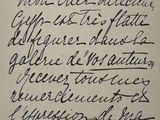 mon cher directeur,
Gyp est très flatté
de figurer dans la
galerie de vos auteurs
Recevez tous mes
remerciements et
l'expression de ma